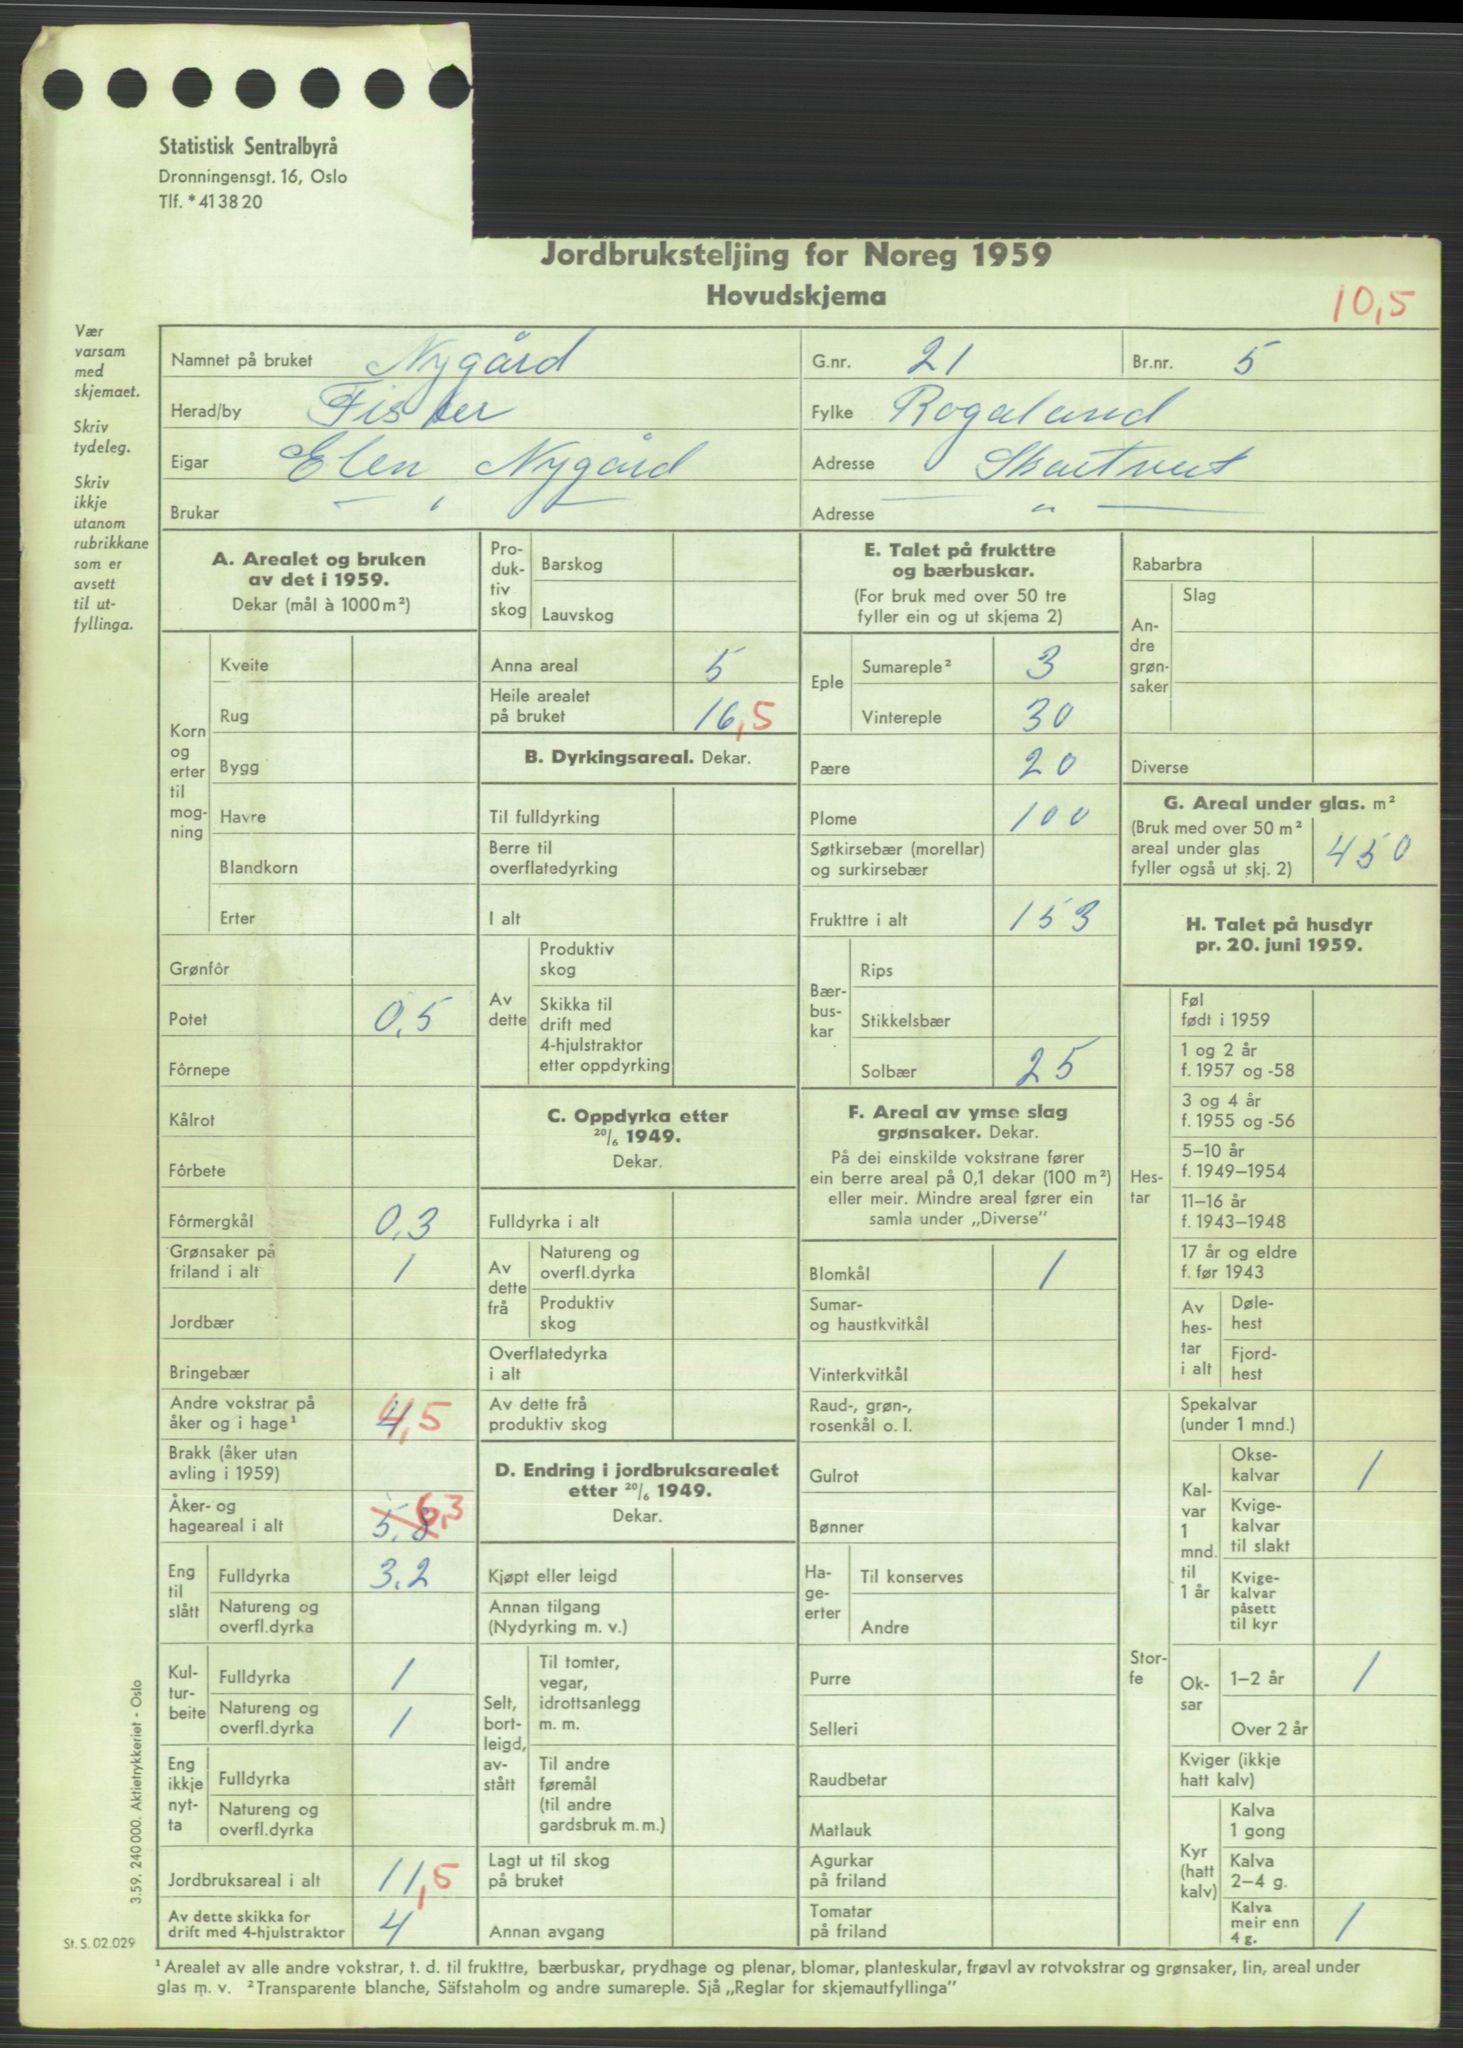 Statistisk Sentralbyrå
Dronningensgt. 16, Oslo
Tlf. * 41 38 20
Jordbruksteljing for Noreg 1959
Hovudskjema
10,5
Vær
varsam
med
skjemaet.
Skriv
tydeleg.
Skriv
ikkje
utanom
rubrikkane
som er
avsett
til ut-
fyllinga.
Namnet på bruket Nygård G.nr. 21 Br.nr. 5
Herad/by Fister Fylke Rogaland
Eigar Elen Nygård Adresse
Brukar — " — Adresse — " —
A. Arealet og bruken
av det i 1959.
Dekar (mål à 1000 m²)
Korn
og
erter
til
mog-
ning
Kveite
Rug
Bygg
Havre
Blandkorn
Erter
Grønfôr
Potet 0,5
Fôrnepe
Kålrot
Fôrbete
Fôrmergkål 0,3
Grønsaker på
friland i alt 1
Jordbær
Bringebær
Andre vokstrar på
åker og i hage¹ 4,5
Brakk (åker utan
avling i 1959)
Åker- og
hageareal i alt 5,8 6,3
Eng
til
slått
Fulldyrka 3,2
Natureng og
overfl.dyrka
Kul-
tur-
beite
Fulldyrka 1
Natureng og
overfl.dyrka 1
Eng
ikkje
nyt-
ta
Fulldyrka
Natureng og
overfl.dyrka
Jordbruksareal i alt 11,5
Av dette skikka for
drift med 4-hjulstraktor 4
Pro-
duk-
tiv
skog
Barskog
Lauvskog
Anna areal 5
Heile arealet
på bruket 16,5
B. Dyrkingsareal. Dekar.
Til fulldyrking
Berre til
overflatedyrking
I alt
Av
dette
Produktiv
skog
Skikka til
drift med
4-hjulstraktor
etter oppdyrking
C. Oppdyrka etter
20/6 1949.
Dekar.
Fulldyrka i alt
Av
dette
frå
Natureng og
overfl.dyrka
Produktiv
skog
Overflatedyrka
i alt
Av dette frå
produktiv skog
D. Endring i jordbruksarealet
etter 20/6 1949.
Dekar.
Kjøpt eller leigd
Annan tilgang
(Nydyrking m. v.)
Selt,
bort-
leigd,
av-
stått
Til tomter,
vegar,
idrottsanlegg
m. m.
Til andre
føremål
(til andre
gardsbruk m. m.)
Lagt ut til skog
på bruket
Annan avgang
E. Talet på frukttre
og bærbuskar.
(For bruk med over 50 tre
fyller ein og ut skjema 2)
Eple
Sumareple² 3
Vintereple 30
Pære 20
Plome 100
Søtkirsebær (morellar)
og surkirsebær
Frukttre i alt 153
Bær-
bus-
kar
Rips
Stikkelsbær
Solbær 25
F. Areal av ymse slag
grønsaker. Dekar.
På dei einskilde vokstrane fører
ein berre areal på 0,1 dekar (100 m²)
eller meir. Mindre areal fører ein
samla under „Diverse”
Blomkål 1
Sumar-
og haustkvitkål
Vinterkvitkål
Raud-, grøn-,
rosenkål o. l.
Gulrot
Bønner
Ha-
ge-
erter
Til konserves
Andre
Purre
Selleri
Raudbetar
Matlauk
Agurkar
på friland
Tomatar
på friland
Rabarbra
An-
dre
grøn-
saker
Slag
Diverse
G. Areal under glas. m²
(Bruk med over 50 m²
areal under glas
fyller også ut skj. 2) 450
H. Talet på husdyr
pr. 20. juni 1959.
Hes-
tar
Føl
født i 1959
1 og 2 år
f. 1957 og -58
3 og 4 år
f. 1955 og -56
5–10 år
f. 1949–1954
11–16 år
f. 1943–1948
17 år og eldre
f. før 1943
Av
hes-
tar
i alt
Døle-
hest
Fjord-
hest
Stor-
fe
Spekalvar
(under 1 mnd.)
Kal-
var
1
mnd.
til
1 år
Okse-
kalvar 1
Kvige-
kalvar
til slakt
Kvige-
kalvar
påsett
til kyr
Ok-
sar
1–2 år 1
Over 2 år
Kviger (ikkje
hatt kalv)
Kyr
(hatt
kalv)
Kalva
1 gong
Kalva
2–4 g.
Kalva
meir enn
4 g. 1
3.59. 240 000. Aktietrykkeriet - Oslo
St. S. 02.029
¹ Arealet av alle andre vokstrar, t. d. til frukttre, bærbuskar, prydhage og plenar, blomar, planteskular, frøavl av rotvokstrar og grønsaker, lin, areal under
glas m. v. ² Transparente blanche, Säfstaholm og andre sumareple. Sjå „Reglar for skjemautfyllinga”